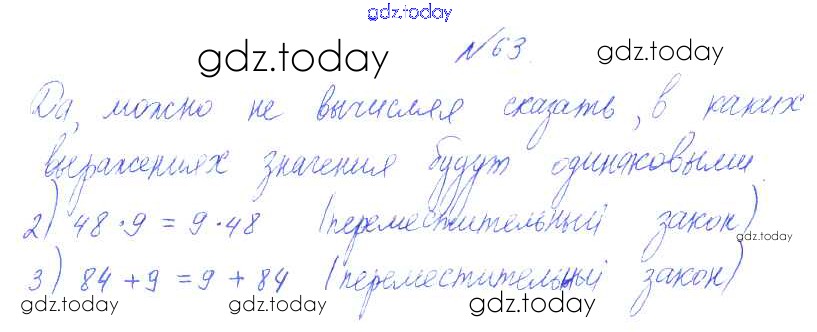 gdz.today
gdz.today №63. gdz.today
Да, можно не вычисляя сказать, в каких
выражениях значения будут одинаковыми.
2) 48 · 9 = 9 · 48 (переместительный закон)
gdz.today
3) 84 + 9 = 9 + 84 (переместительный закон)
gdz.today gdz.today gdz.today gdz.today